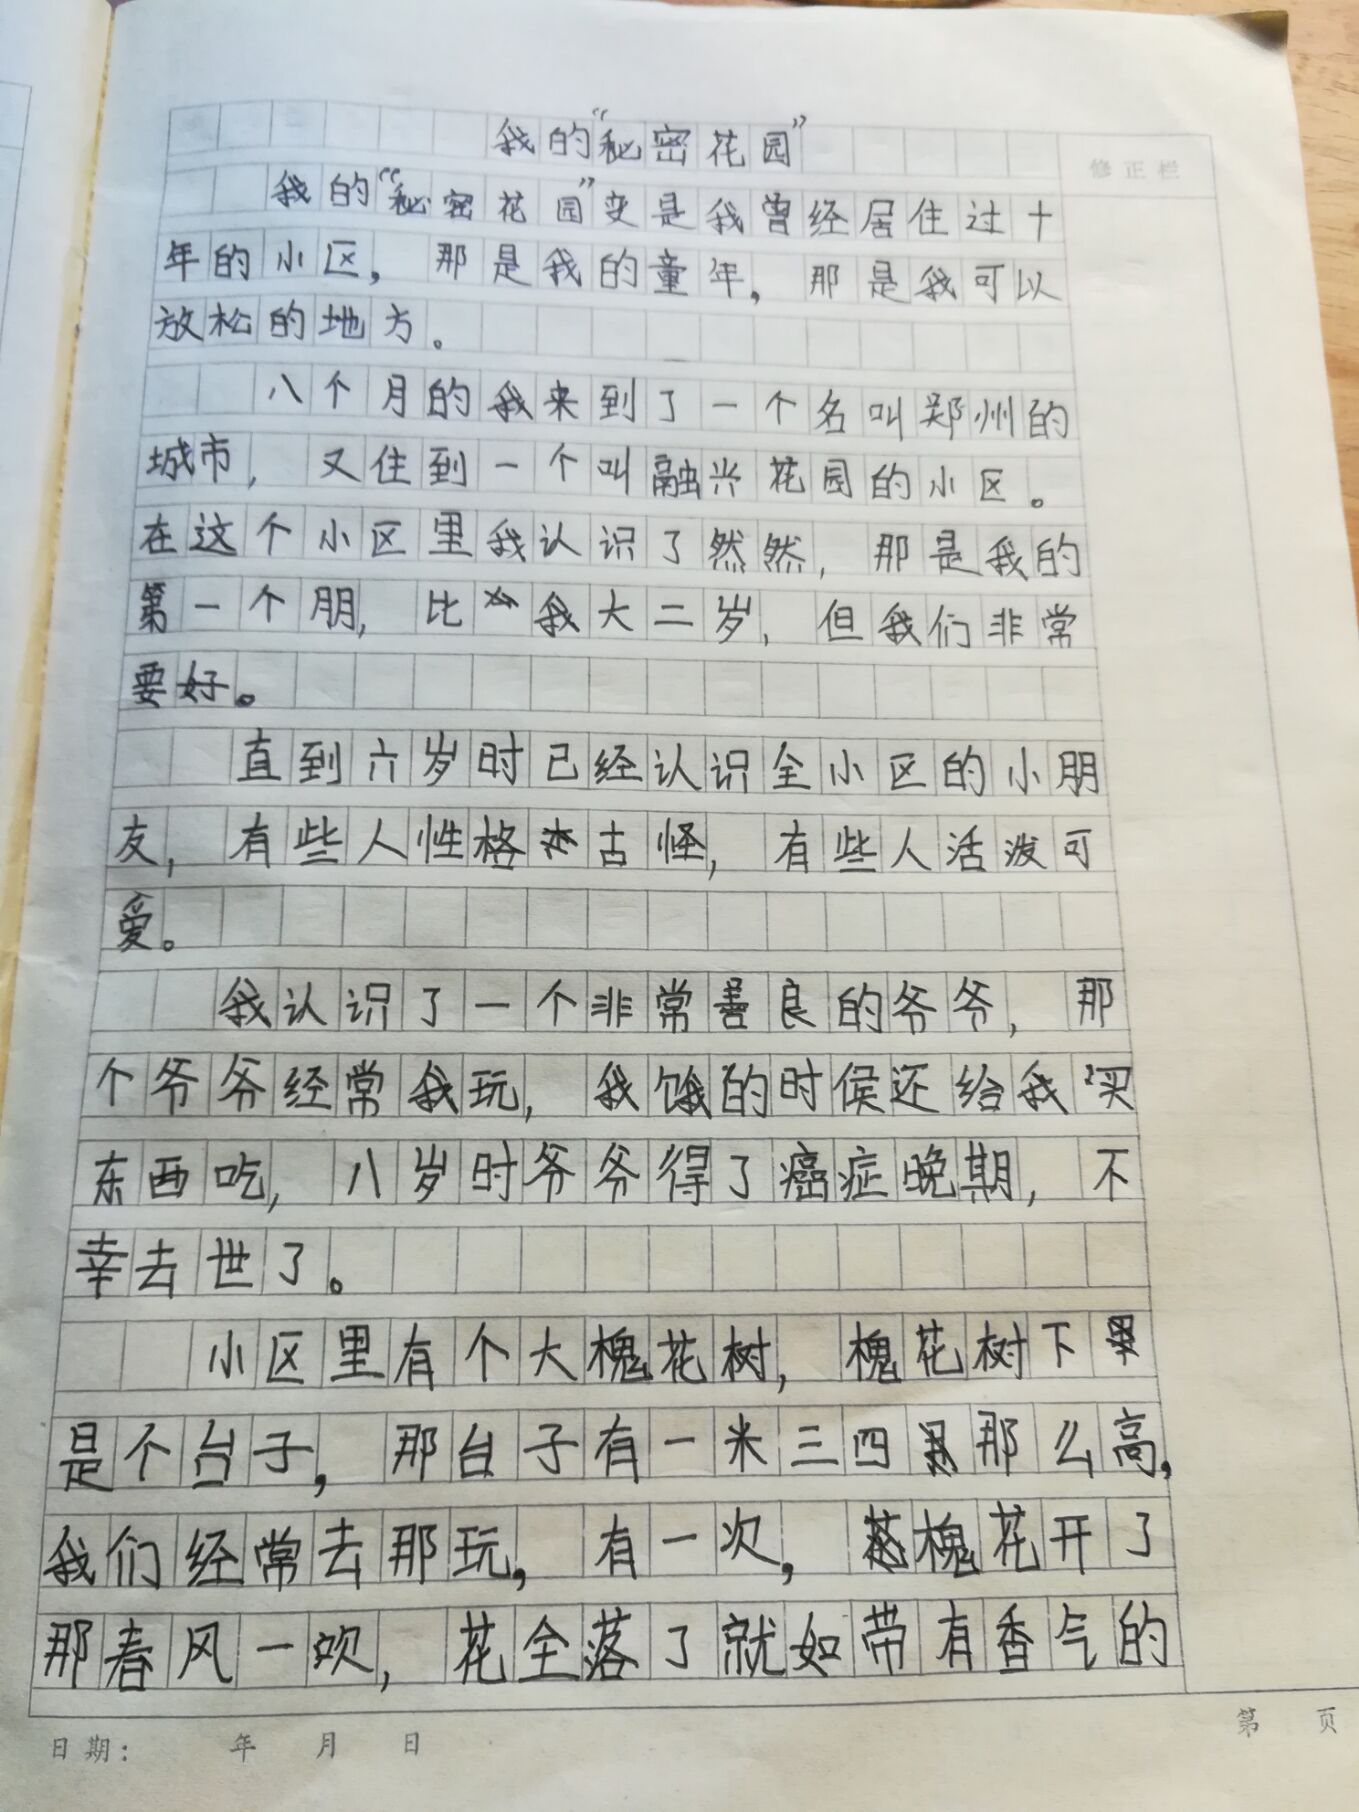 我的“秘密花园”
修正栏
我的“秘密花园”变是我曾经居住过十
年的小区，那是我的童年，那是我可以
放松的地方。
八个月的我来到了一个名叫郑州的
城市，又住到一个叫融兴花园的小区。
在这个小区里我认识了然然，那是我的
第一个朋，比我大二岁，但我们非常
要好。
直到六岁时已经认识全小区的小朋
友，有些人性格古怪，有些人活泼可
爱。
我认识了一个非常善良的爷爷，那
个爷爷经常我玩，我饿的时候还给我买
东西吃，八岁时爷爷得了癌症晚期，不
幸去世了。
小区里有个大槐花树，槐花树下
是个台子，那台子有一米三四那么高，
我们经常去那玩，有一次，槐花开了
那春风一吹，花全落了就如带有香气的
日期： 年 月 日
第 页